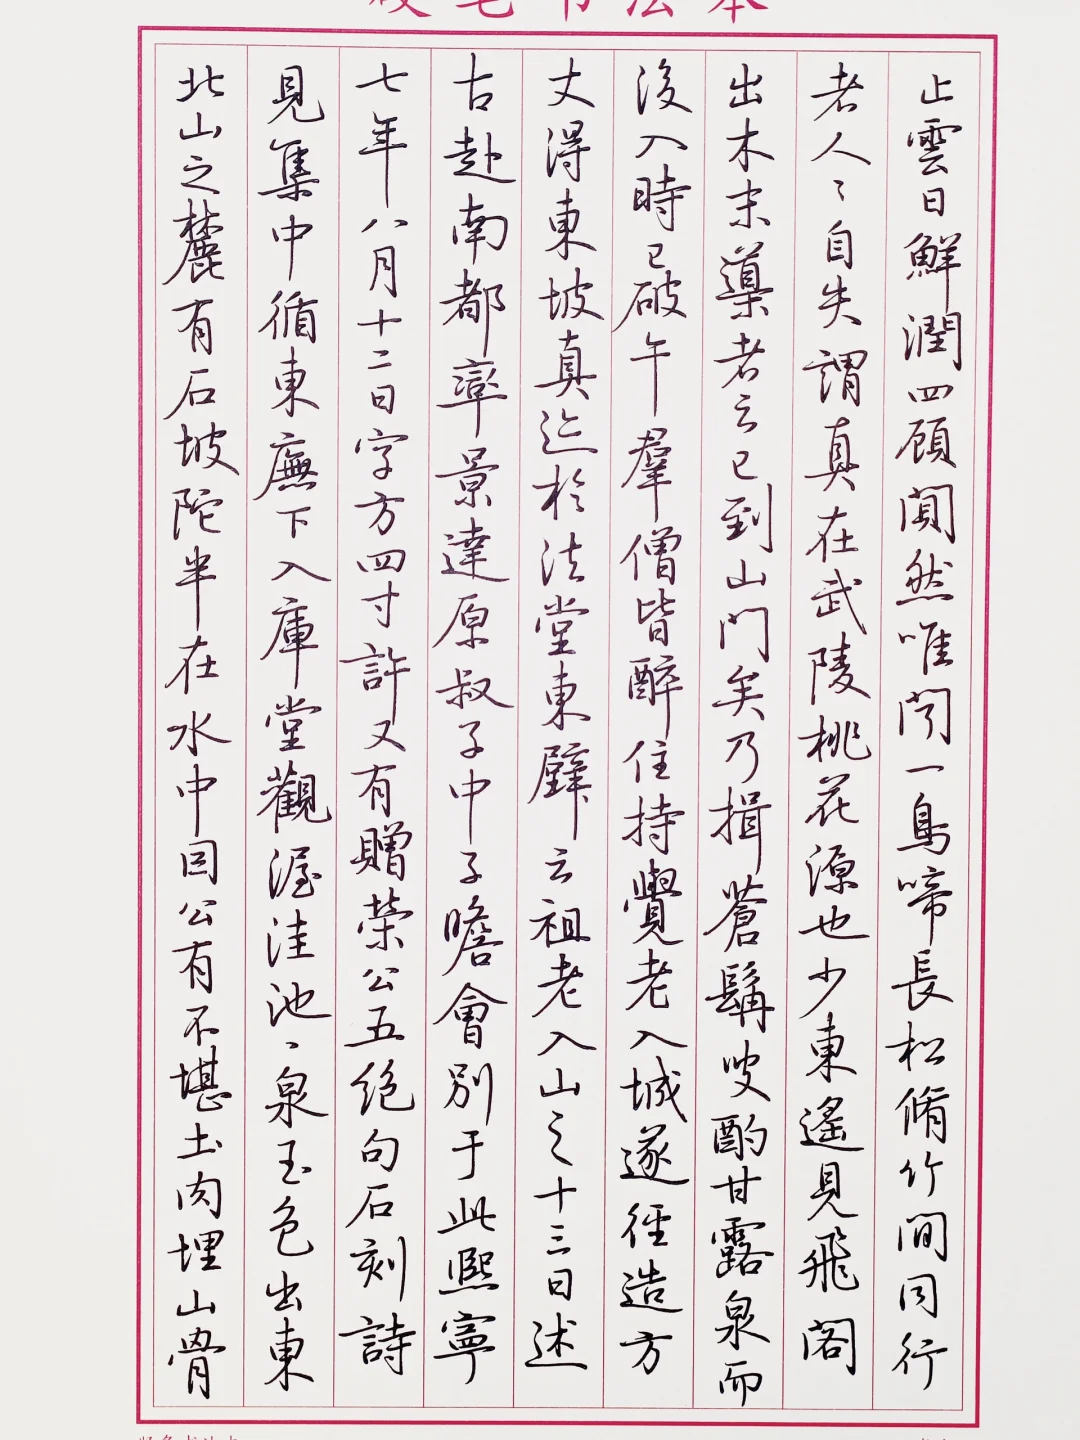 硬笔书法本
止雲日鮮潤四顧闃然唯聞一鳥啼長松脩竹間同行
老人〻自失謂真在武陵桃花源也少東遙見飛閣
出木末導者云已到山門矣乃揖蒼髯叟酌甘露泉而
後入時已破午羣僧皆醉住持覺老入城遂徑造方
丈得東坡真迄於法堂東壁云祖老入山之十三日述
古赴南都率景達原叔子中子瞻會別于此熙寧
七年八月十二日字方四寸許又有贈榮公五绝句石刻詩
見集中循東廡下入庫堂觀渥洼池〻泉玉色出東
北山之麓有石坡陀半在水中因公有不堪土肉埋山骨